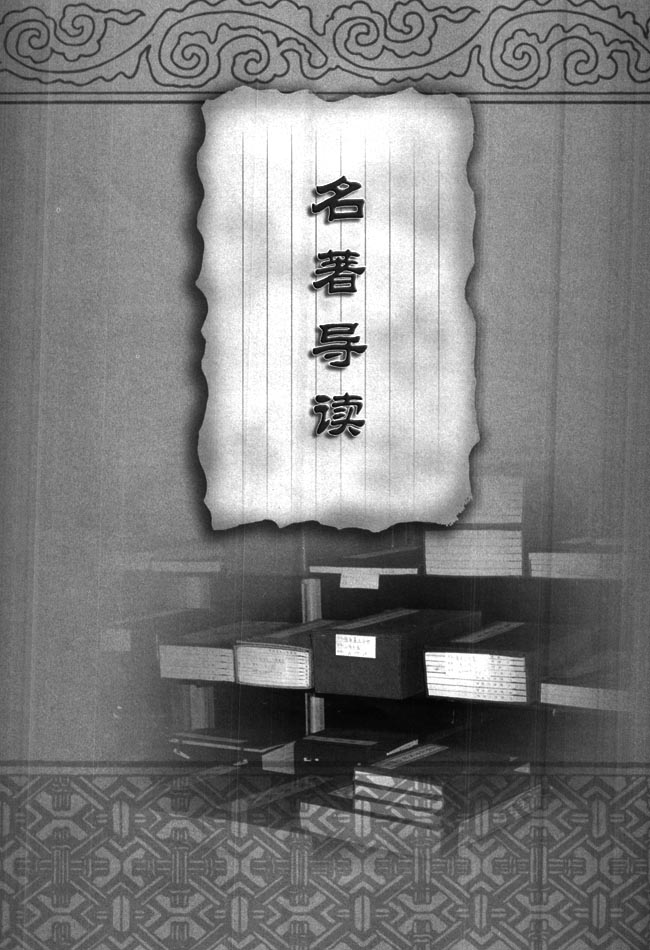 名著导读